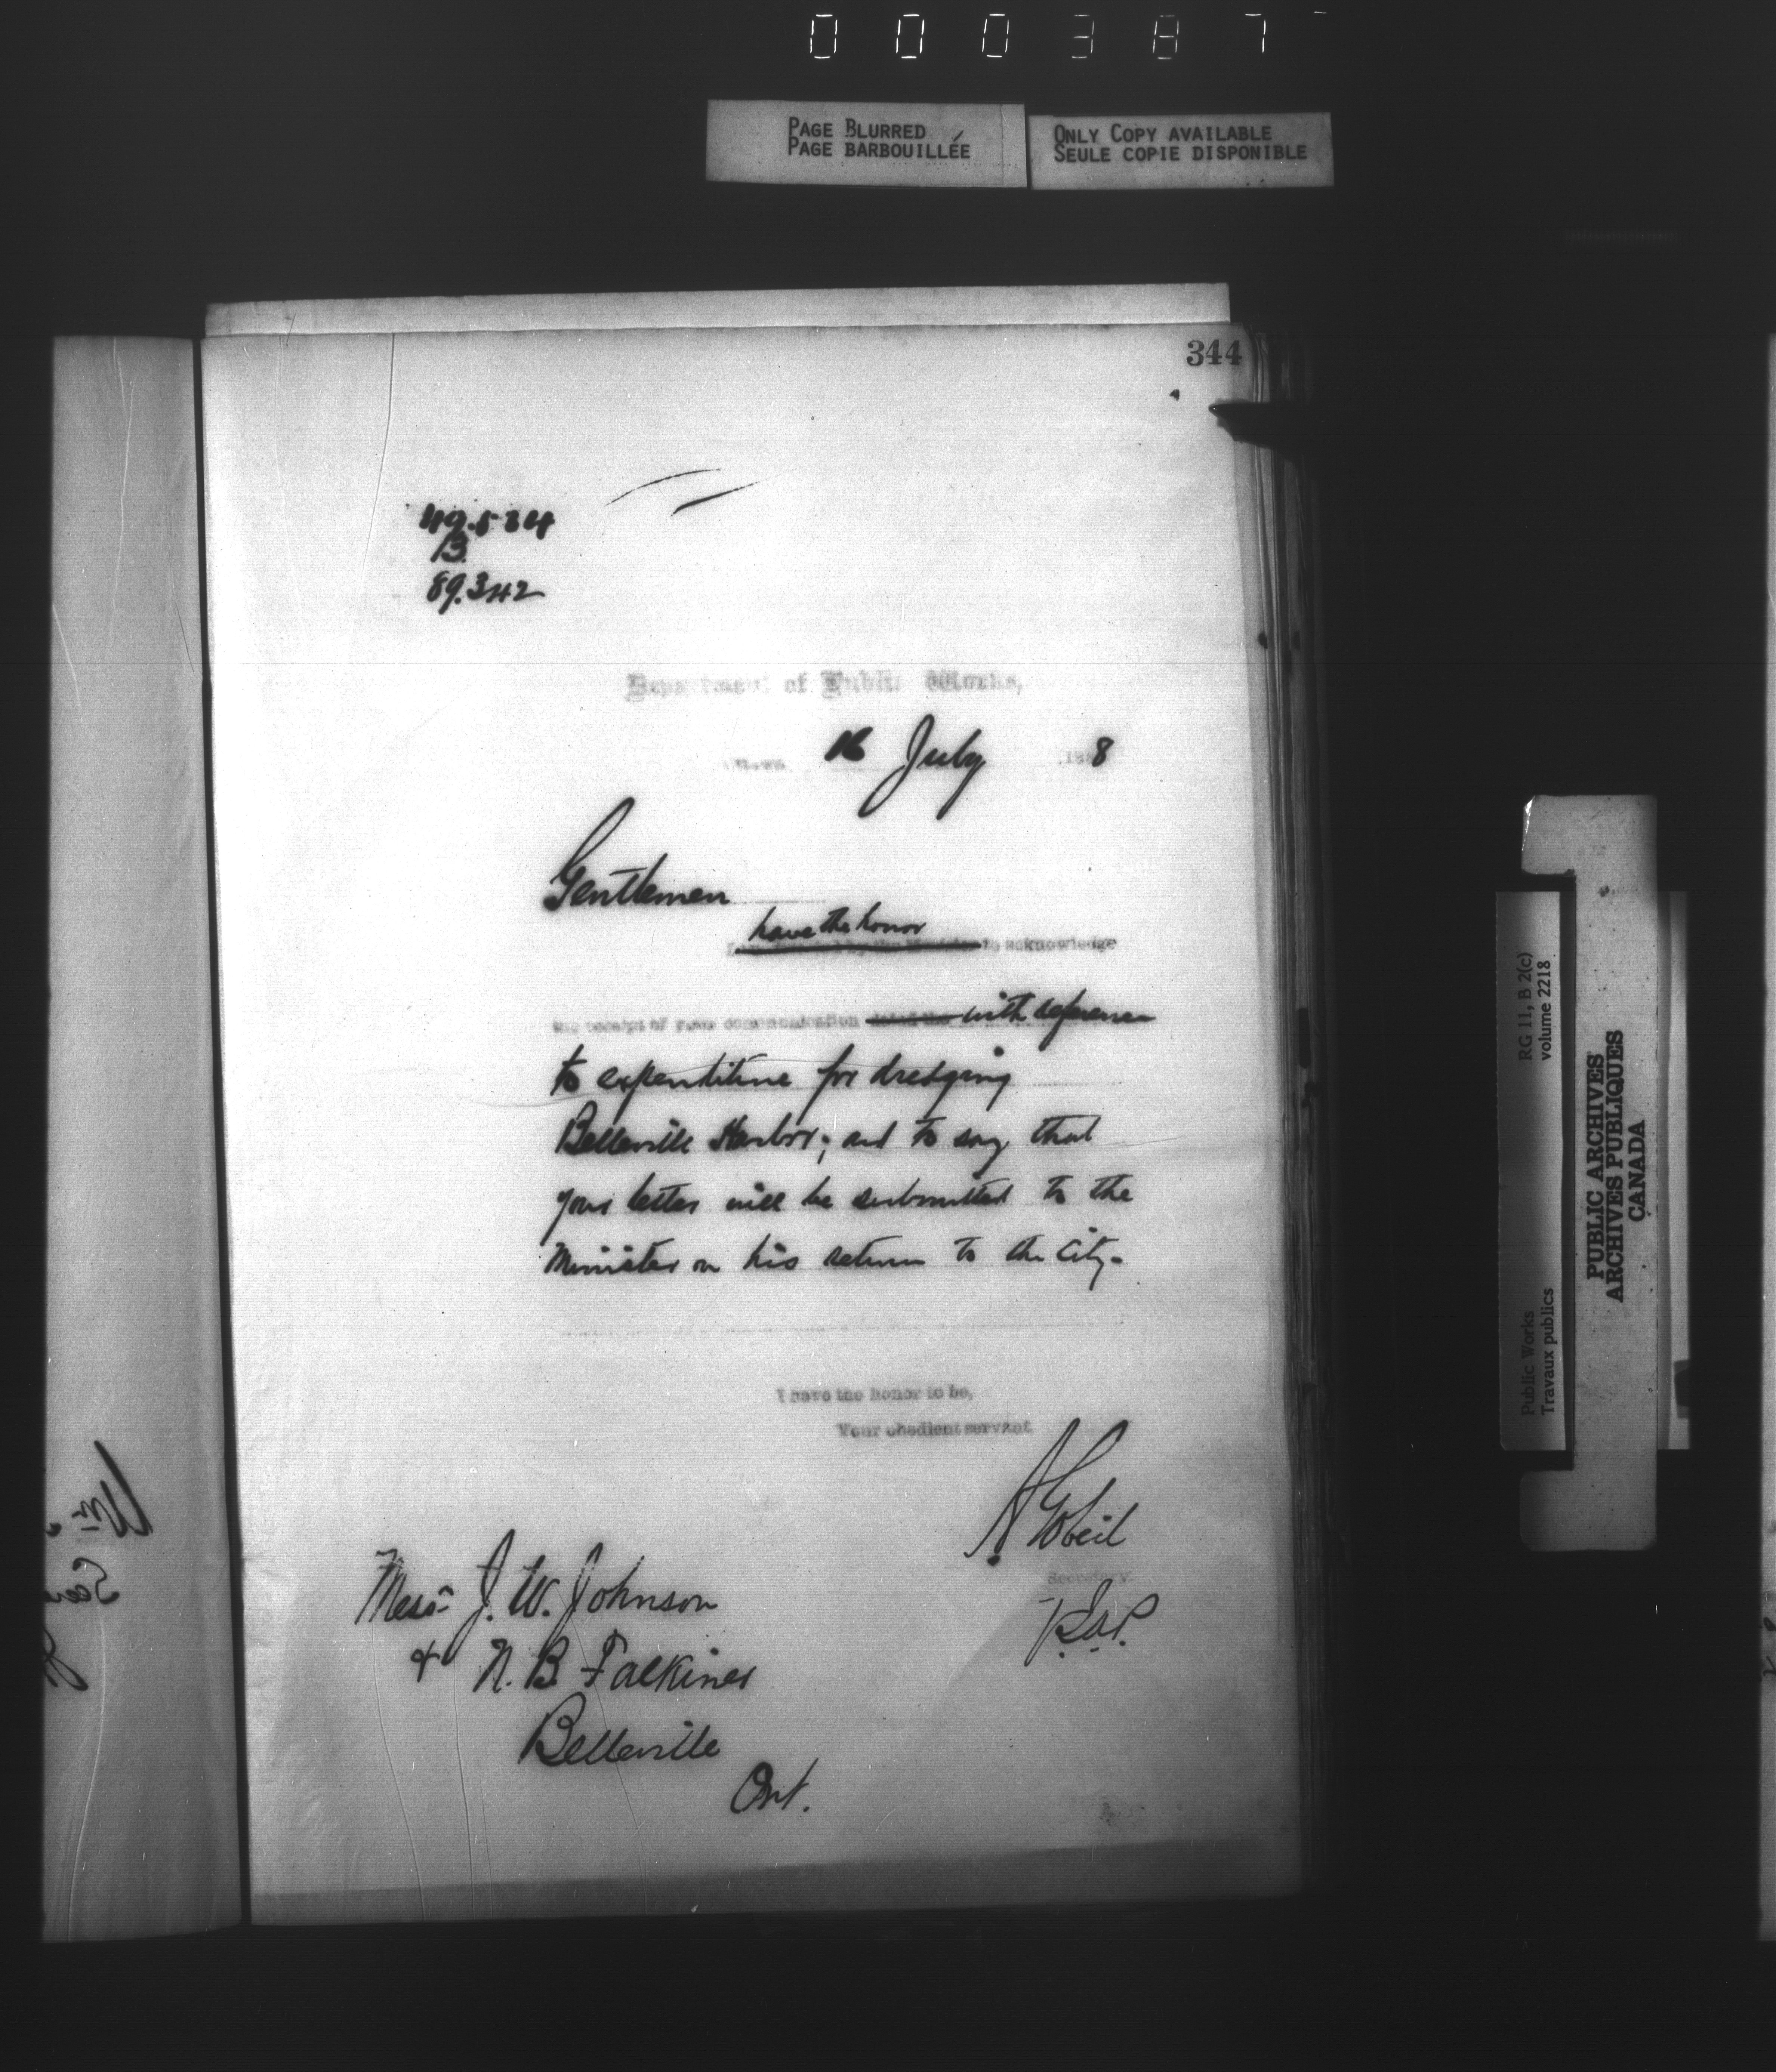 000387
PAGE BLURRED
PAGE BARBOUILLÉE
ONLY COPY AVAILABLE
SEULE COPIE DISPONIBLE
344
49.534
B
89.342
Department of Public Works,
Ottawa 16 July 1888
Gentlemen
have the honor
by the Minister to acknowledge
the receipt of your communication dated the with reference
to expenditure for dredging
Belleville Harbor; and to say that
your letter will be submitted to the
Minister on his return to the City.
I have the honor to be,
Your obedient servant
A Gobeil
Secretary.
Messrs J. W. Johnson
& N. B. Falkiner
Belleville
Ont.
RG 11, B 2(c)
volume 2218
Public Works
Travaux publics
PUBLIC ARCHIVES
ARCHIVES PUBLIQUES
CANADA